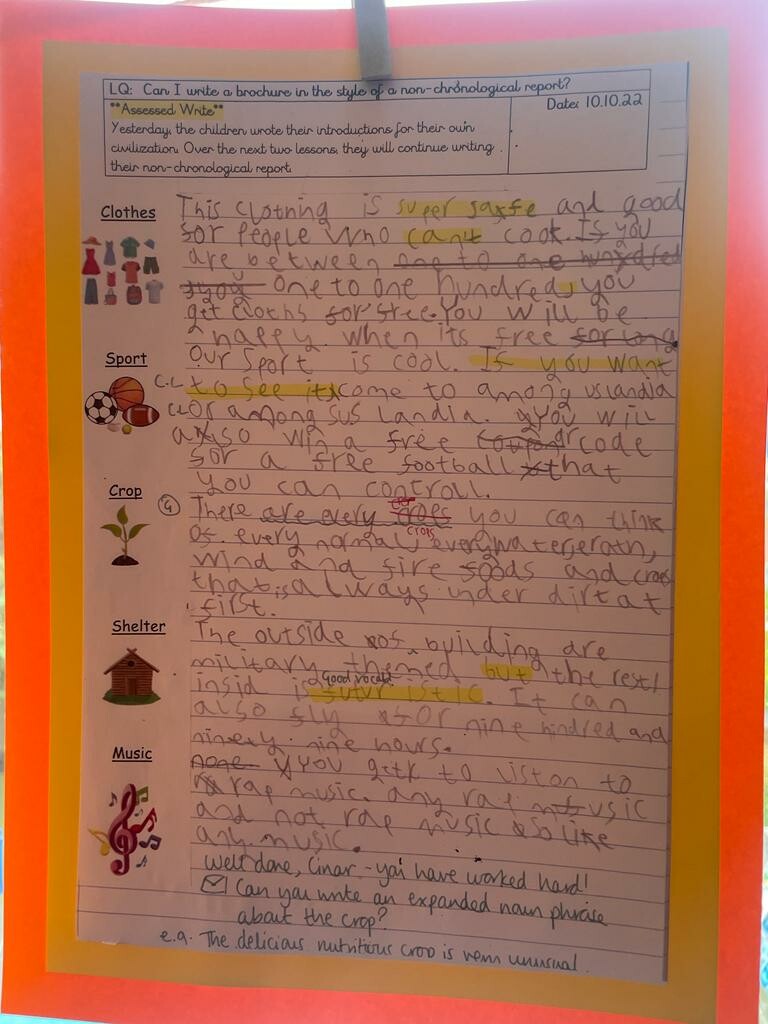 LQ: Can I write a brochure in the style of a non-chronological report?
**Assessed Write**
Date: 10.10.22
Yesterday, the children wrote their introductions for their own
civilization. Over the next two lessons, they will continue writing
their non-chronological report.
Clothes
This clothing is super safe and good
for people who can't cook. If you
are between one to one hundred
one to one hundred, you
get cloths for free. You will be
happy when its free for long
Sport
our sport is cool. If you want
C.L. to see it come to among us landia
C.L. or among sus Landia. You will
also win a free coupon code
for a free football that
you can controll.
Crop
G There are every crops you can think
crops
of. every normal, every
wind and fire foods and crops
that is always under dirt at
first.
Shelter
The outside of building are
military themed but the rest/
good vocab
insid is futuristic. It can
also fly for nine hindred and
ninety nine hours.
Music
none You get to liston to
rap music. any rap music
and not rap music so like
any music.
Well done, Cinar - you have worked hard!
Can you write an expanded noun phrase
about the crop?
e.g. The delicious nutritious crop is very unusual.